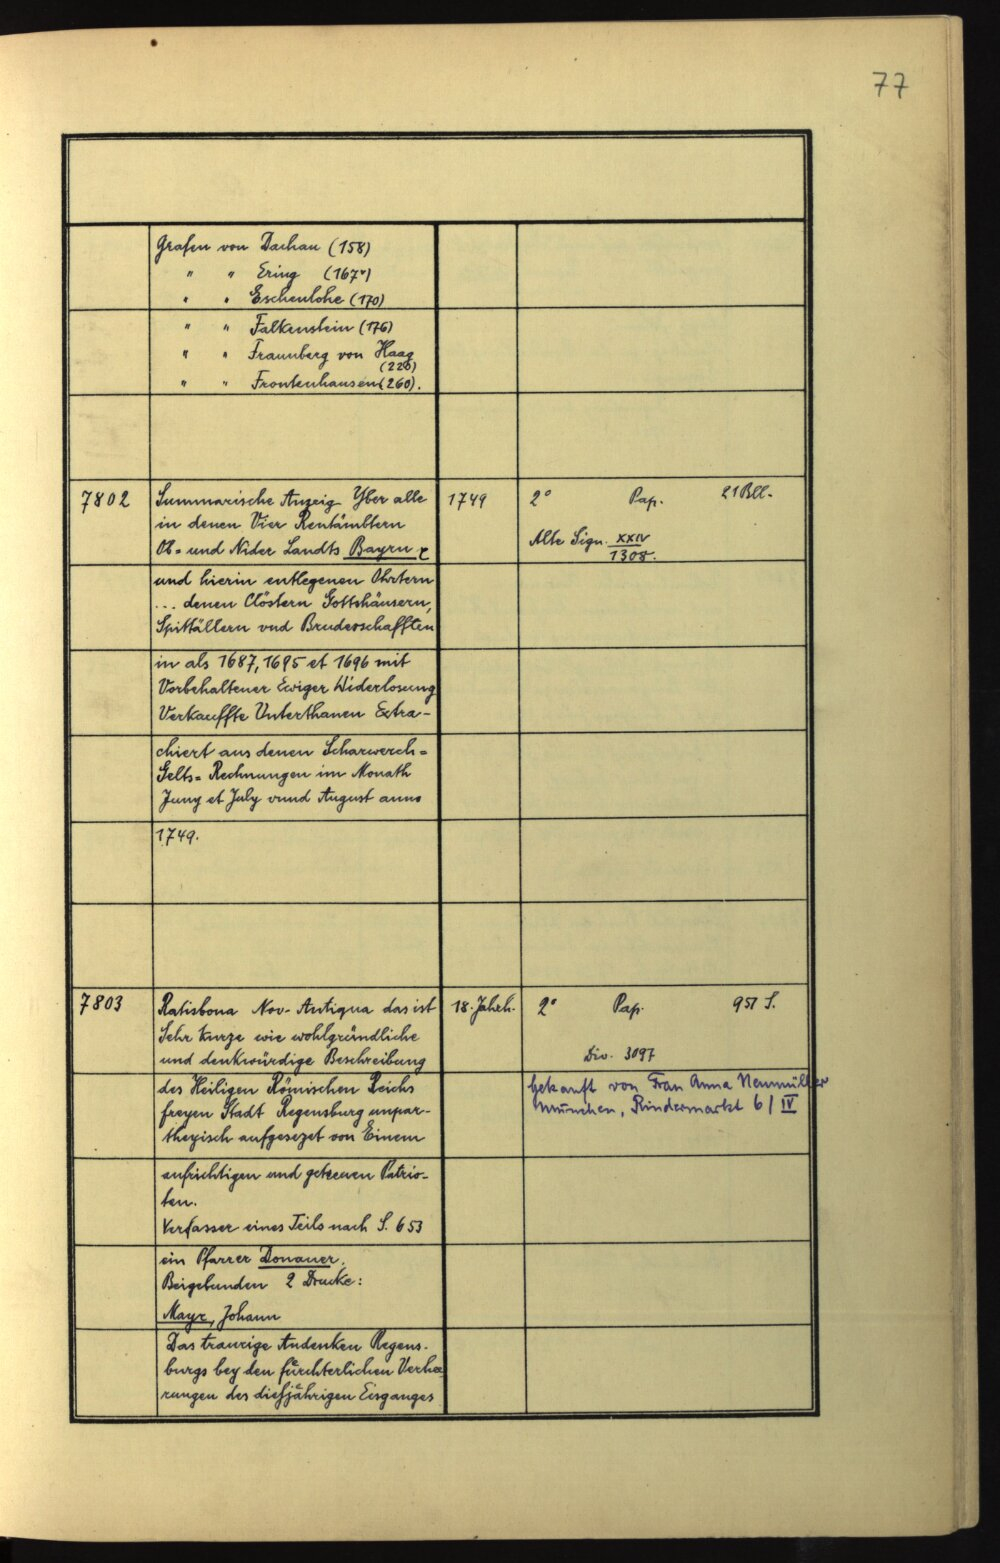 77
Grafen von Dachau (158)
" " Ering (167v)
" " Eschenlohe (170)
" " Falkenstein (176)
" " Fraunberg von Haag
(220)
" " Frontenhausen (260).
7802 Summarische Anzeig Yber alle 1749 2° Pap. 21 Bll.
in denen Vier Rentämbtern
Ob= und Nider Landts Bayrn Alte Sign. XXIV
1308.
und hierin entlegenen Ohrtern
... denen Clöstern Gottshäusern,
Spittällern vnd Bruderschafften
in als 1687, 1695 et 1696 mit
Vorbehaltener Ewiger Widerlosung
Verkauffte Unterthanen Extra-
chiert aus denen Scharwerch=
Gelts= Rechnungen im Monath
Juny et July vnnd August anno
1749.
7803 Ratisbona Nov- Antiqua das ist 18. Jahrh. 2° Pap. 951 S.
Sehr kurze wie wohlgründliche
und denkwürdige Beschreibung Div. 3097
des Heiligen Römischen Reichs gekauft von Frau Anna Neumüller
freyen Stadt Regensburg unpar- München, Rindermarkt 6/IV
theyisch aufgesezet von Einem
aufrichtigen und getreuen Patrio-
ten.
Verfasser eines Teils nach S. 653
ein Pfarrer Donauer.
Beigebunden 2 Drucke:
Mayr, Johann
Das traurige Andenken Regens-
burgs bey den fürchterlichen Verhee
rungen des dießjährigen Eisganges